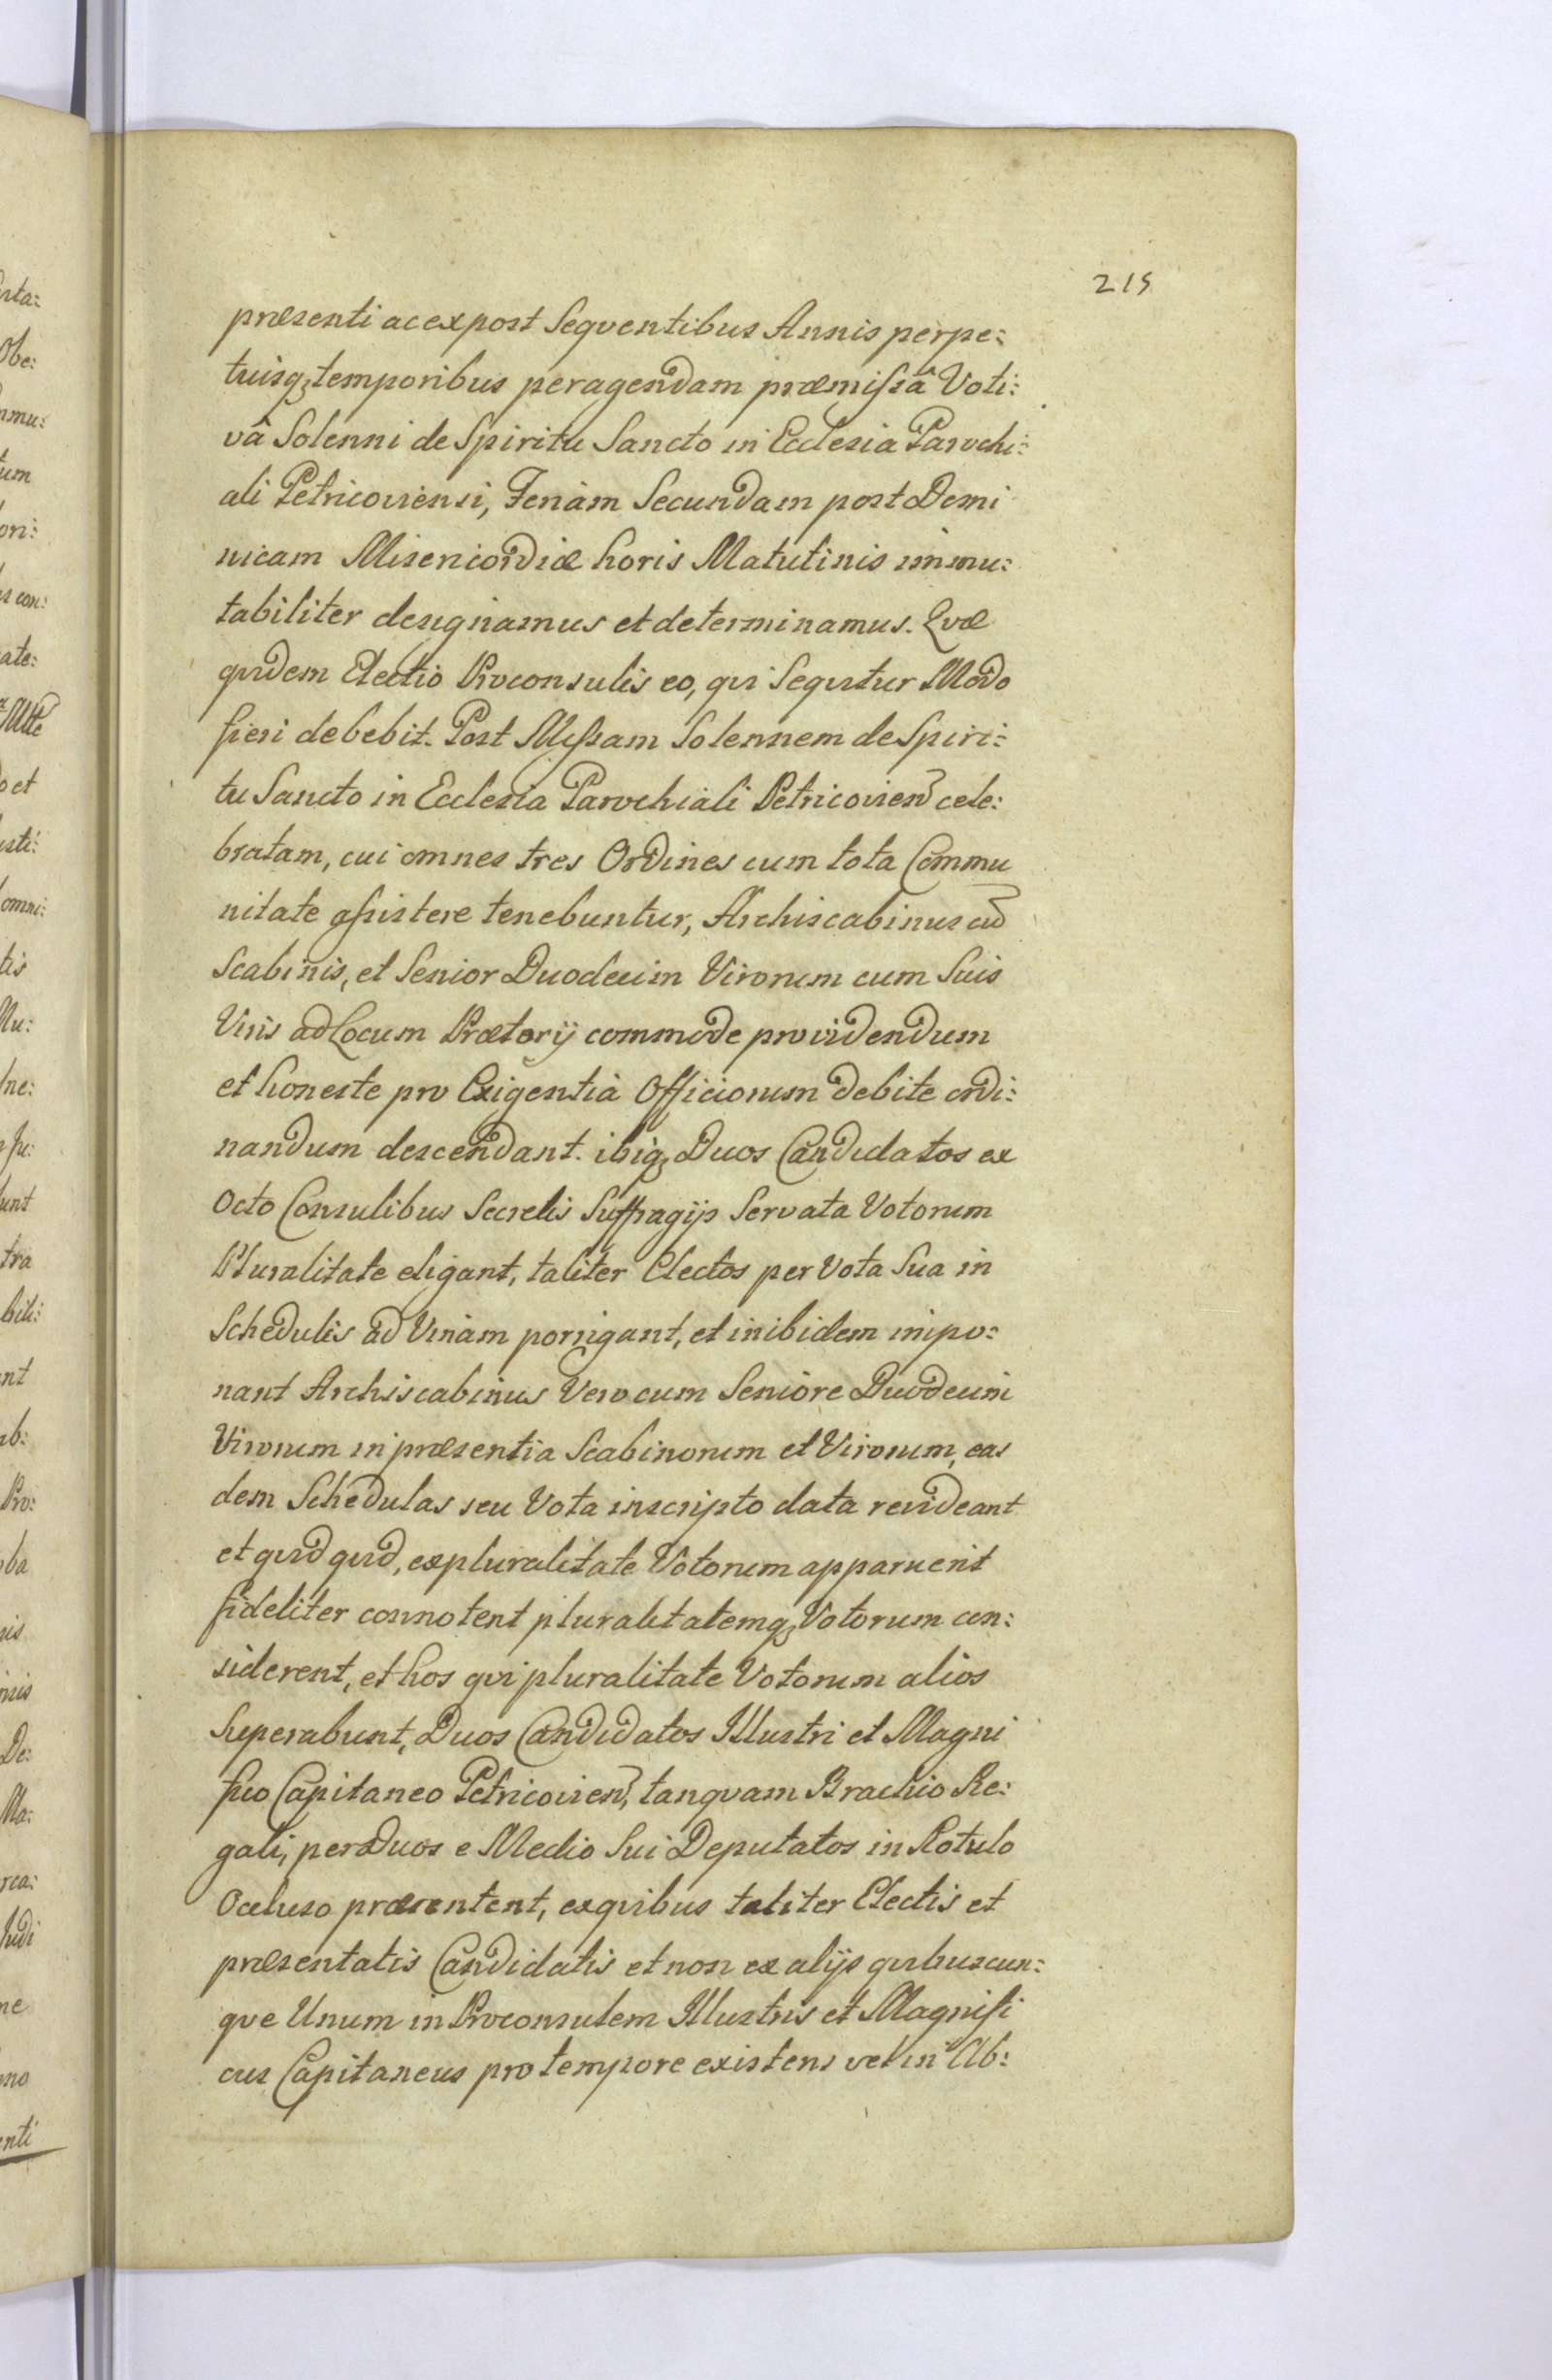 215
præsenti ac ex post Seqventibus Annis perpe:
tuisq₃ temporibus peragendam præmissâ Voti:
vâ Solenni de Spiritu Sancto in Ecclesia Parochi:
ali Petricoviensi, Feriam Secundam post Domi
nicam Misericordiæ horis Matutinis immu:
tabiliter designamus et determinamus. Qvæ
qvidem Electio Proconsulis eo, qvi Seqvitur Modo
fieri debebit. Post Missam Solennem de Spiri:
tu Sancto in Ecclesia Parochiali Petricovien cele:
bratam, cui omnes tres Ordines cum tota Commu
nitate assistere tenebuntur, Archiscabinus cu
Scabinis, et Senior Duodecim Virorum cum Suis
Viris ad Locum Prætorij commode providendum
et honeste pro Exigentia Officiorum debite ordi:
nandum descendant. ibiq₃ Duos Candidatos ex
Octo Consulibus Secretis Suffragijs Servata Votorum
Pluralitate eligant, taliter Electos per Vota Sua in
Schedulis ad Urnam porrigant, et inibidem impo:
nant Archiscabinus Vero cum Seniore Duodecim
Virorum in præsentia Scabinorum et Virorum, eas
dem Schedulas seu Vota inscripto data revideant
et qvid qvid, ex pluralitate Votorum apparuerit
fideliter connotent pluralitatemq₃ Votorum con:
siderent, et hos qvi pluralitate Votorum alios
Superabunt, Duos Candidatos Illustri et Magni
fico Capitaneo Petricovien, tanqvam Brachio Re:
gali, per Duos e Medio Sui Deputatos in Rotulo
Occluso præsentent, ex qvibus taliter Electis et
præsentatis Candidatis et non ex alijs qvibuscun:
qve Unum in Proconsulem Illustris et Magnifi
cus Capitaneus pro tempore existens vel in Ab: